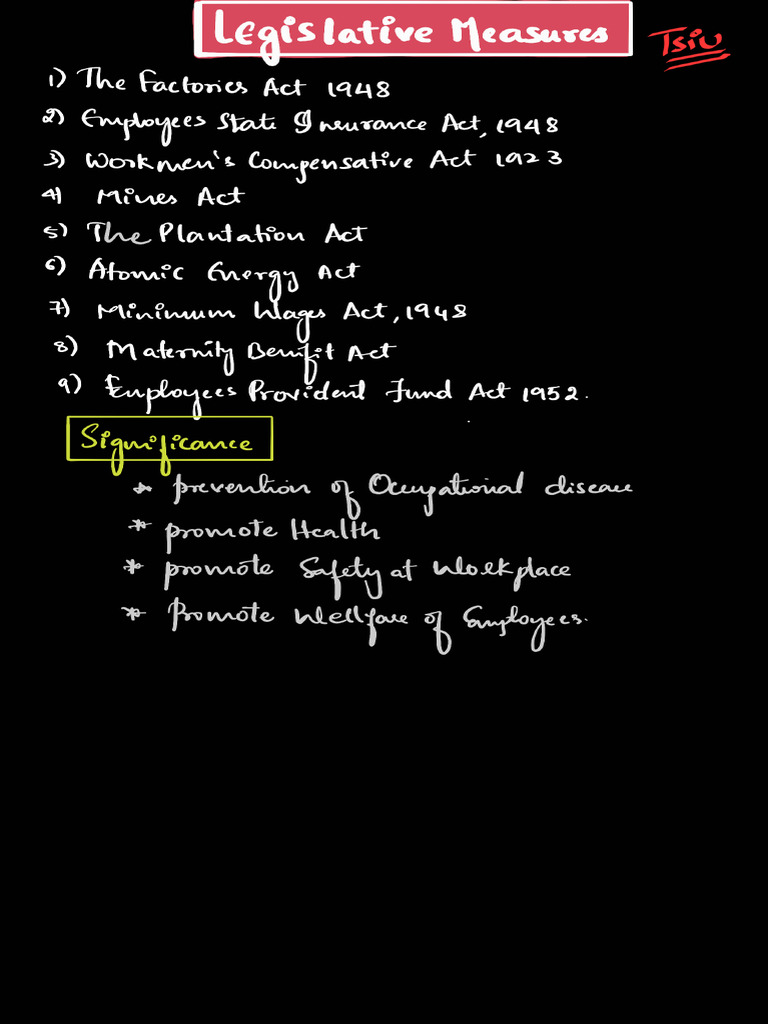 Legislative Measures
Tsiu
1) The Factories Act 1948
2) Employees State Insurance Act, 1948
3) Workmen's Compensative Act 1923
4) Mines Act
5) The Plantation Act
6) Atomic Energy Act
7) Minimum Wages Act, 1948
8) Maternity Benifit Act
9) Employees Provident Fund Act 1952.
Significance
* prevention of Occupational disease
* promote Health
* promote Safety at Workplace
* Promote Wellfare of Employees.